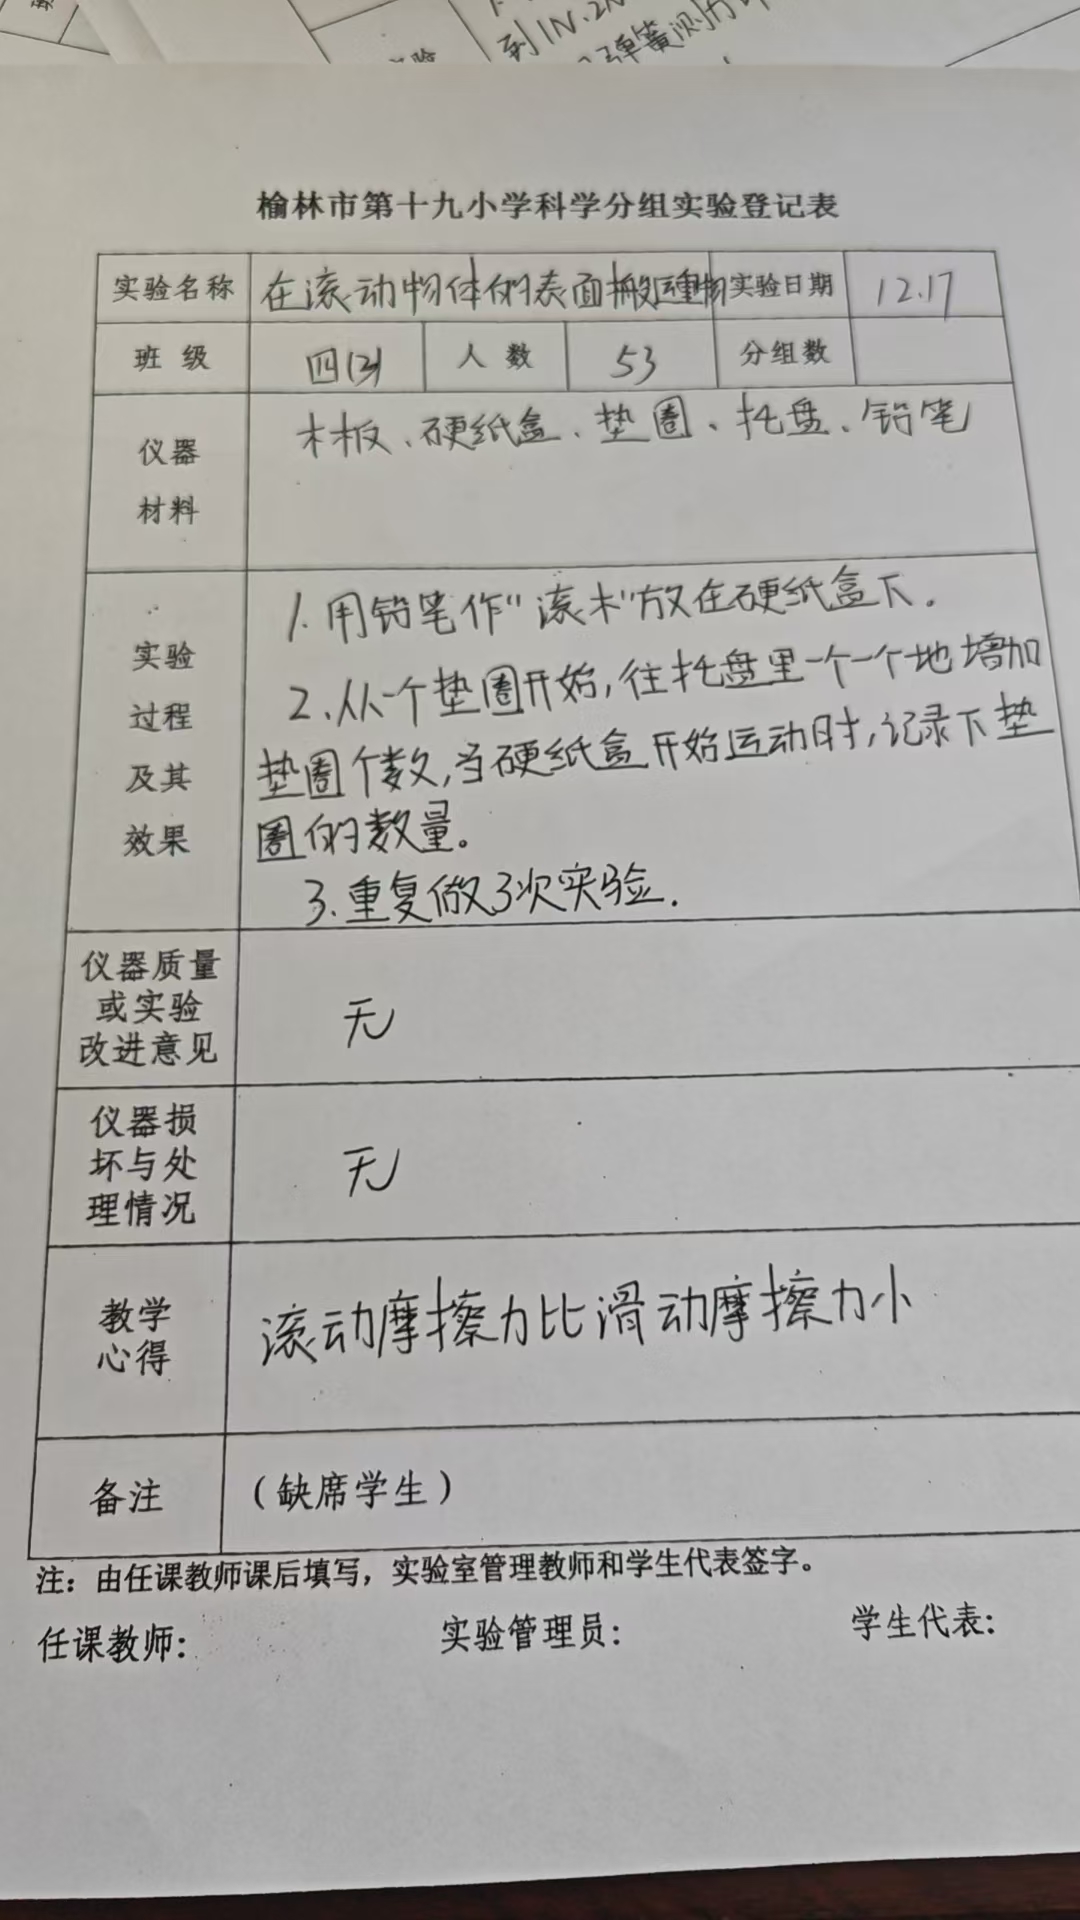 到1N.2N
弹簧测力
榆林市第十九小学科学分组实验登记表
实验名称 在滚动物体的表面搬运重物 实验日期 12.17
班 级 四(3) 人 数 53 分组数
仪器
材料
木板、硬纸盒、垫圈、托盘、铅笔
实验
过程
及其
效果
1.用铅笔作"滚木"放在硬纸盒下.
2.从一个垫圈开始,往托盘里一个一个地增加
垫圈个数,当硬纸盒开始运动时,记录下垫
圈的数量。
3.重复做3次实验.
仪器质量
或实验
改进意见
无
仪器损
坏与处
理情况
无
教学
心得
滚动摩擦力比滑动摩擦力小
备注 (缺席学生)
注：由任课教师课后填写，实验室管理教师和学生代表签字。
任课教师: 实验管理员: 学生代表: